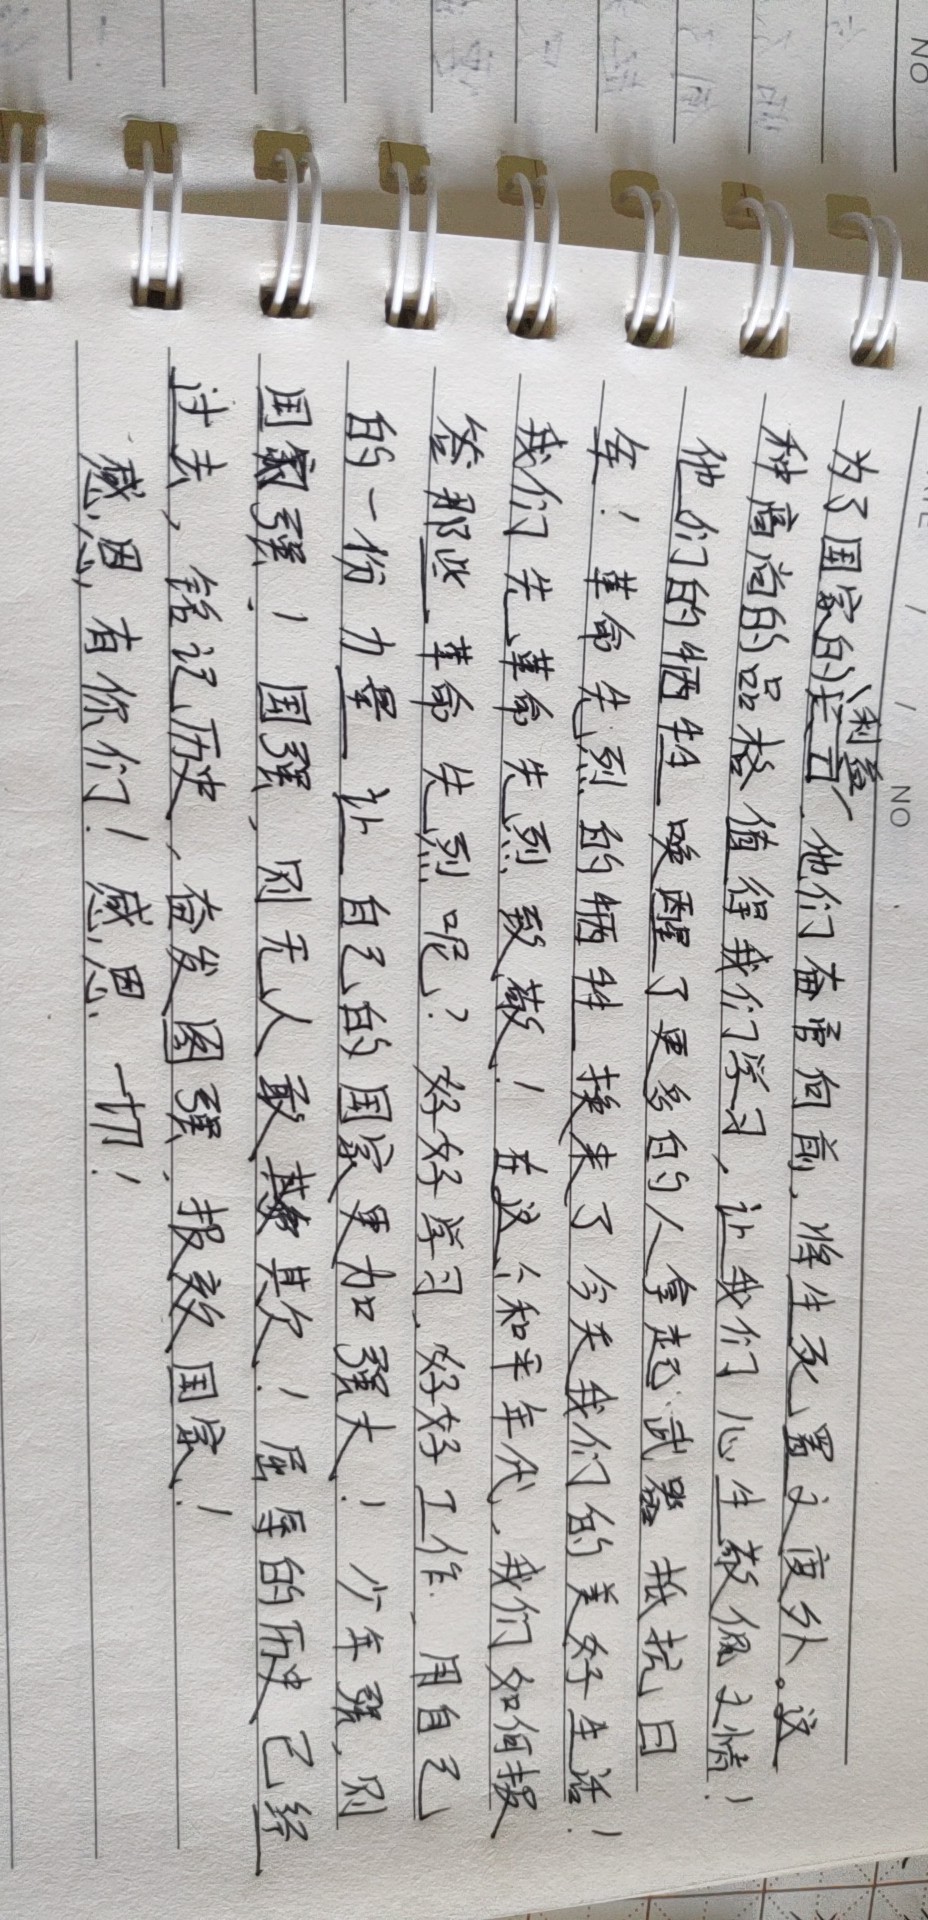 NO
利益
为了国家的 他们奋勇向前，将生死置之度外。这
种高尚的品格值得我们学习，让我们心生敬佩之情！
他们的牺牲 唤醒了更多的人拿起武器 抵抗日
军！革命先烈的牺牲 换来了今天我们的美好生活！
我们先革命先烈致敬！在这个和平年代，我们如何报
答那些革命先烈呢？好好学习，好好工作，用自己
的一份力量 让自己的国家更加强大！少年强，则
国家强！国强，则无人敢 其欠！屈辱的历史已经
过去，铭记历史，奋发图强，报效国家！
感恩，有你们！感恩，一切！